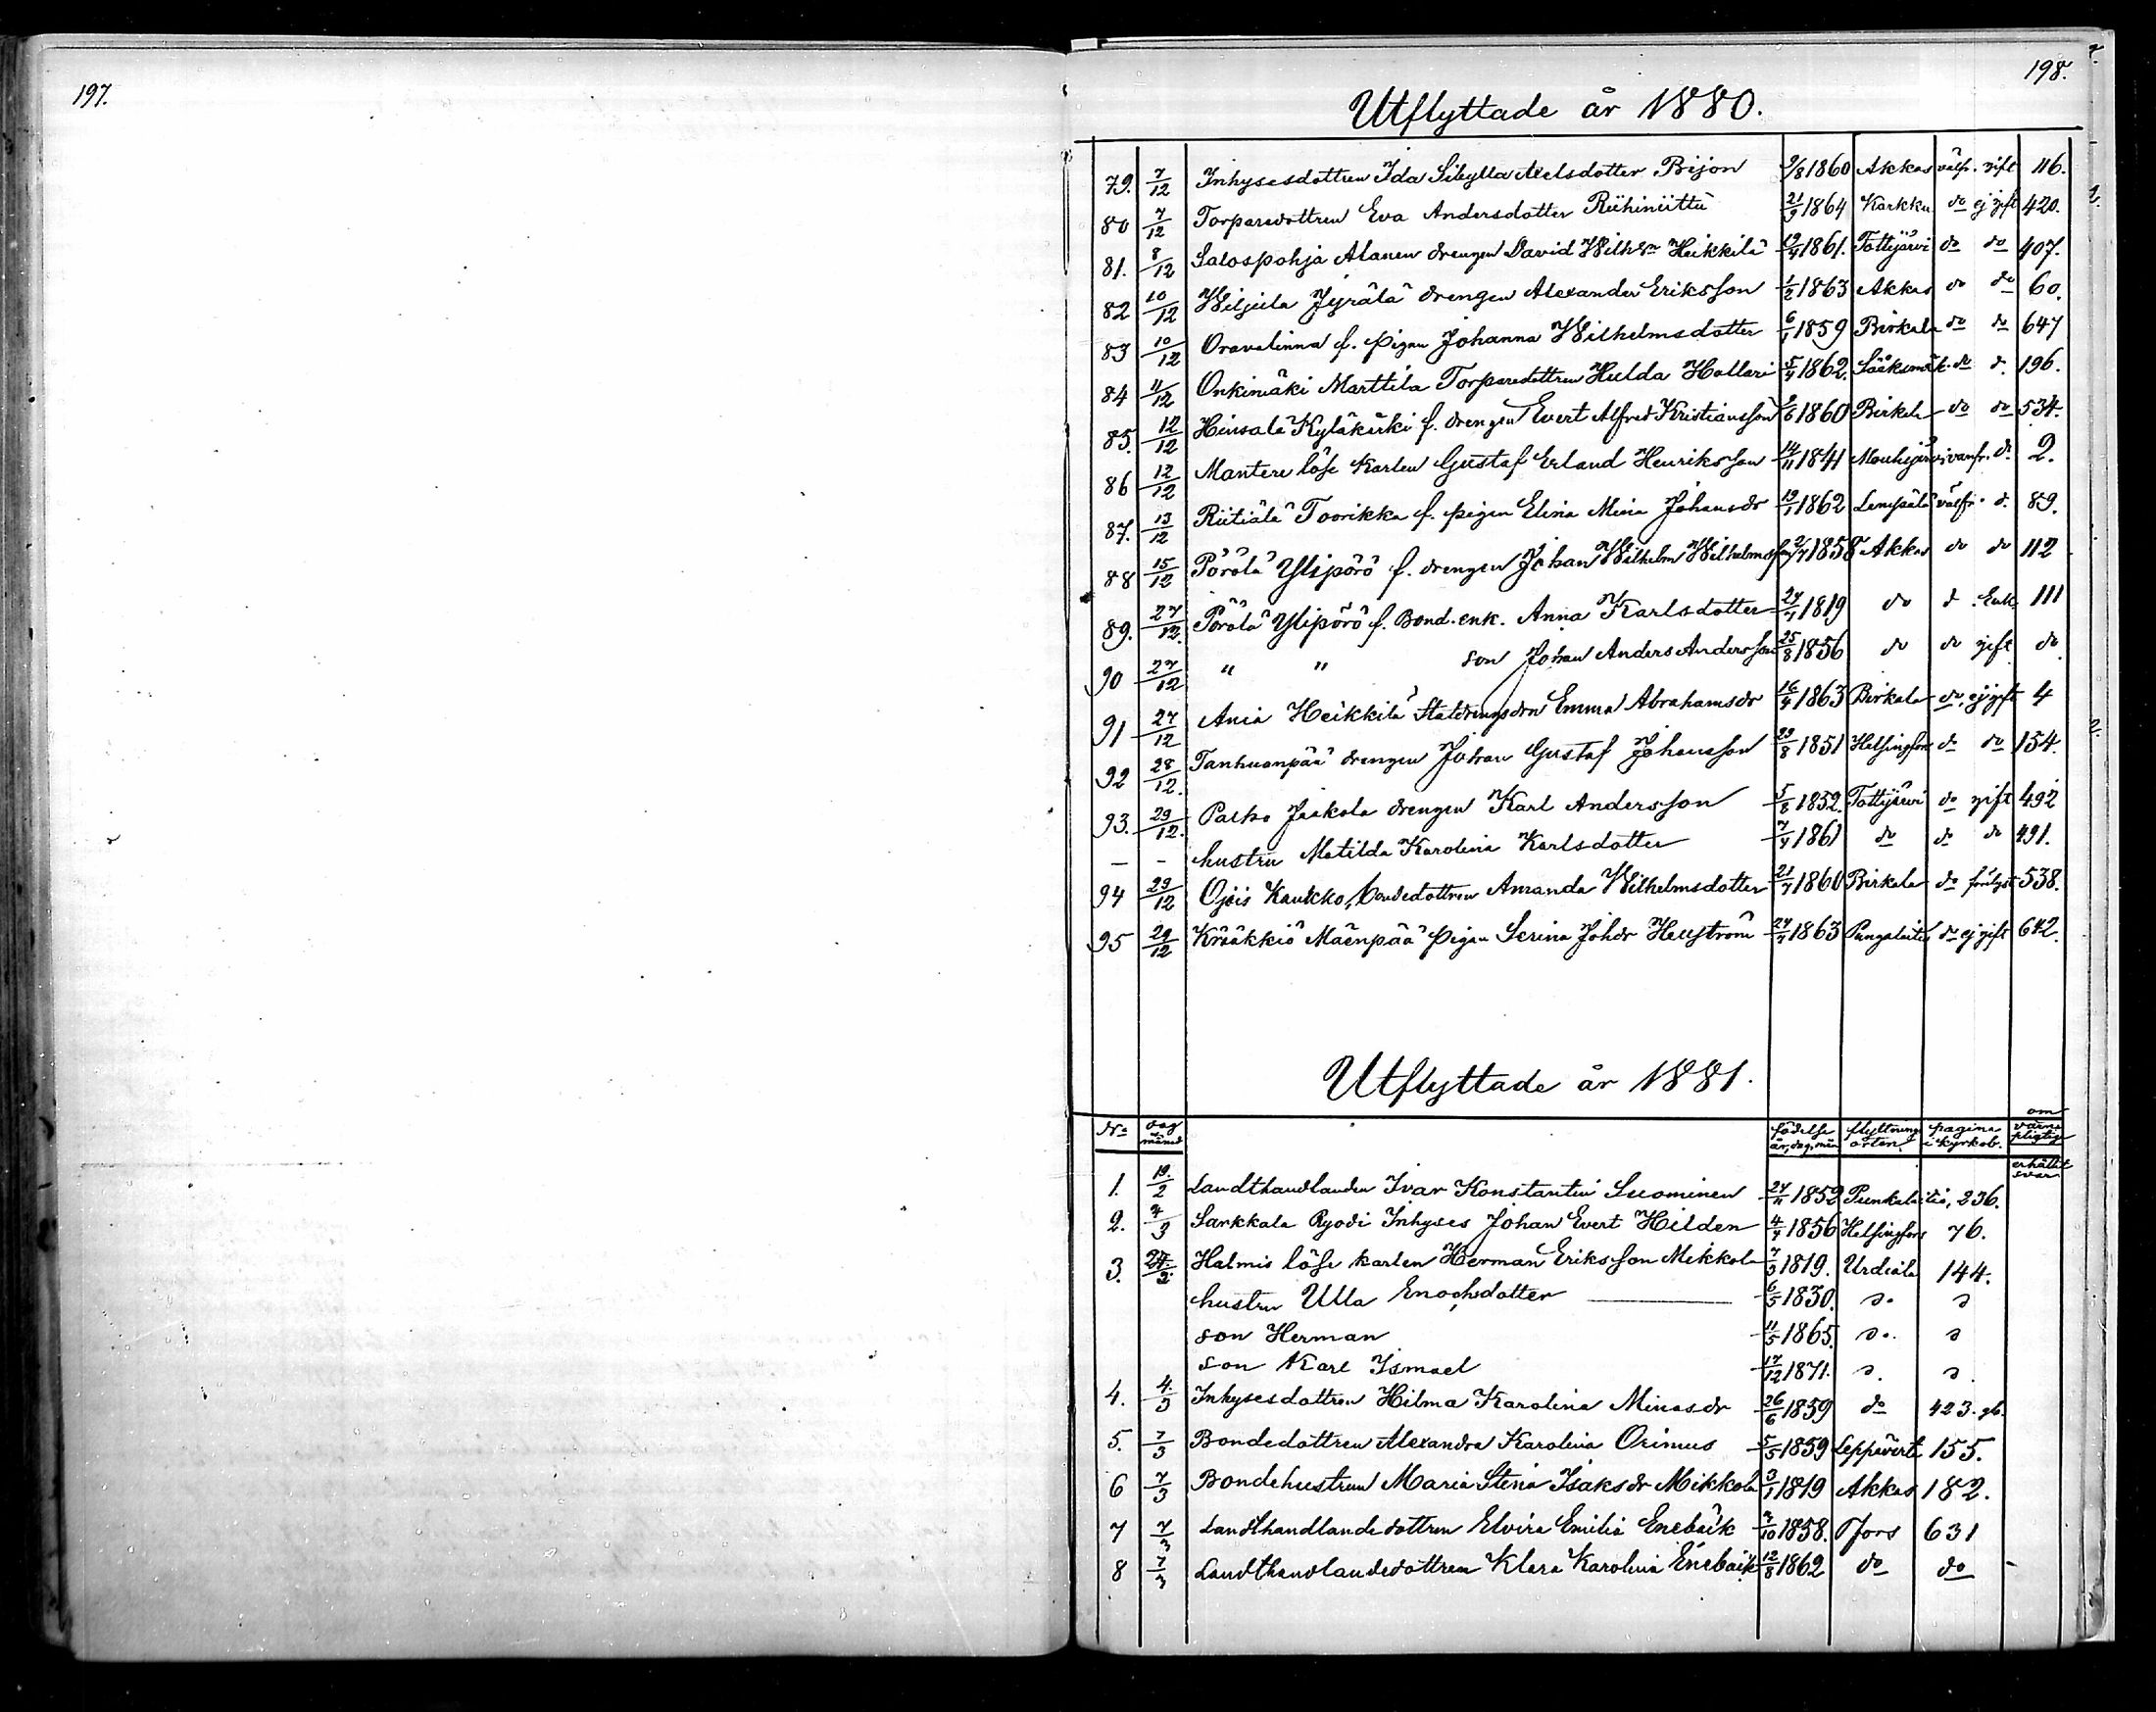 197.
198.
Utflyttade år 1880.
79. 7/12 Inhysesdottren Ida Sibylla Axelsdotter Bijon 9/8 1860 Akkas välfr. gift 116.
80 7/12 Torparedottren Eva Andersdotter Riihiniittu 21/9 1864 Karkku do ej gift 420.
81. 8/12 Salospohja Alanen drengen David Wilhsn Heikkilä 19/4 1861. Tottijärvi do do 407.
82 10/12 Wiljula Jyrälä drengen Alexander Eriksson 1/2 1863 Akkas do do 60.
83 10/12 Oravalinna f. pigan Johanna Wilhelmsdotter 6/1 1859 Birkala do do 647
84 11/12 Onkimäki Marttila Torparedottren Hulda Hollari 5/4 1862. Sääksmäk. do d. 196.
85. 12/12 Hinsala Kyläkurki f. drengen Evert Alfred Kristiansson /6 1860 Birkala do do 534.
86 12/12 Mantere löse Karlen Gustaf Erland Henriksson 14/11 1841 Mouhijärvi vanfr. d. 2.
87. 13/12 Riitiälä Toorikka f. pigan Elina Mina Johansdr 19/1 1862 Lempälä välfr. d. 89.
88 15/12 Pörölä Ylipörö f. drengen Johan Wilhelm Wilhelmsson 2/7 1858 Akkas do do 112
89. 27/12. Pörölä Ylipörö f. Bond. enk. Anna Karlsdotter 24/7 1819 do d. Enk. 111
90 27/12 " " son Johan Anders Andersson 25/8 1856 do do gift do
91 27/12 Ania Heikkilä Staldrengsdrn Emma Abrahamsdr 16/4 1863 Birkala do. ej gift 4
92 28/12. Tanhuanpää drengen Johan Gustaf Johansson 29/8 1851 Helsingfors do do 154.
93. 29/12. Parko Jaakola drengen Karl Andersson 5/8 1852. Tottijärvi do gift 492
— - hustru Matilda Karolina Karlsdotter 7/4 1861 do do do 491.
94 29/12 Ojois Kaukko, bondedottren Amanda Wilhelmsdotter 21/7 1860 Birkala do förlyst 538.
95 29/12 Krääkkiö Mäenpää pigan Serina Johdr Hellström 24/7 1863 Pungalaitio do ej gift 642.
Utflyttade år 1881.
No dag månad födelse år, dag, mån flyttnings orten. pagina i kyrkob. om värnepligtige erhållit svar
1. 19./2 Landthandlanden Ivar Konstantin Suominen 24/11 1852 Punkalaitio, 236.
2. 4/3 Sarkkala Ryödi Inhyses Johan Evert Hilden 4/7 1856 Helsingfors 76.
3. 24./2. Halmis löse karlen Herman Eriksson Mikkola 7/3 1819. Urdiala 144.
hustru Ulla Enochsdotter 6/5 1830. d. d
son Herman 11/5 1865. d. d
son Karl Ismael 17/12 1871. d. d.
4. 4./3 Inhysesdottren Hilma Karolina Minasdr 26/6 1859 do 423. gb.
5. 7/3 Bondedottren Alexandra Karolina Orimus 5/5 1859 Leppävirta 155.
6 7/3 Bondehustrun Maria Stina Isaksdr Mikkola 3/1 1819 Akkas 182.
7 7/3 Landthandlandedottren Elvira Emilia Enebäck 3/10 1858. Tfors 631
8 7/3 Landthandlandedottren Klara Karolina Enebäck 12/8 1862 do do